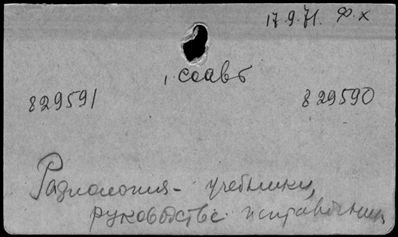 17.9.71. Ф.х
, соавт
829591 829590
Радиология - учебники,
руководства и справочники